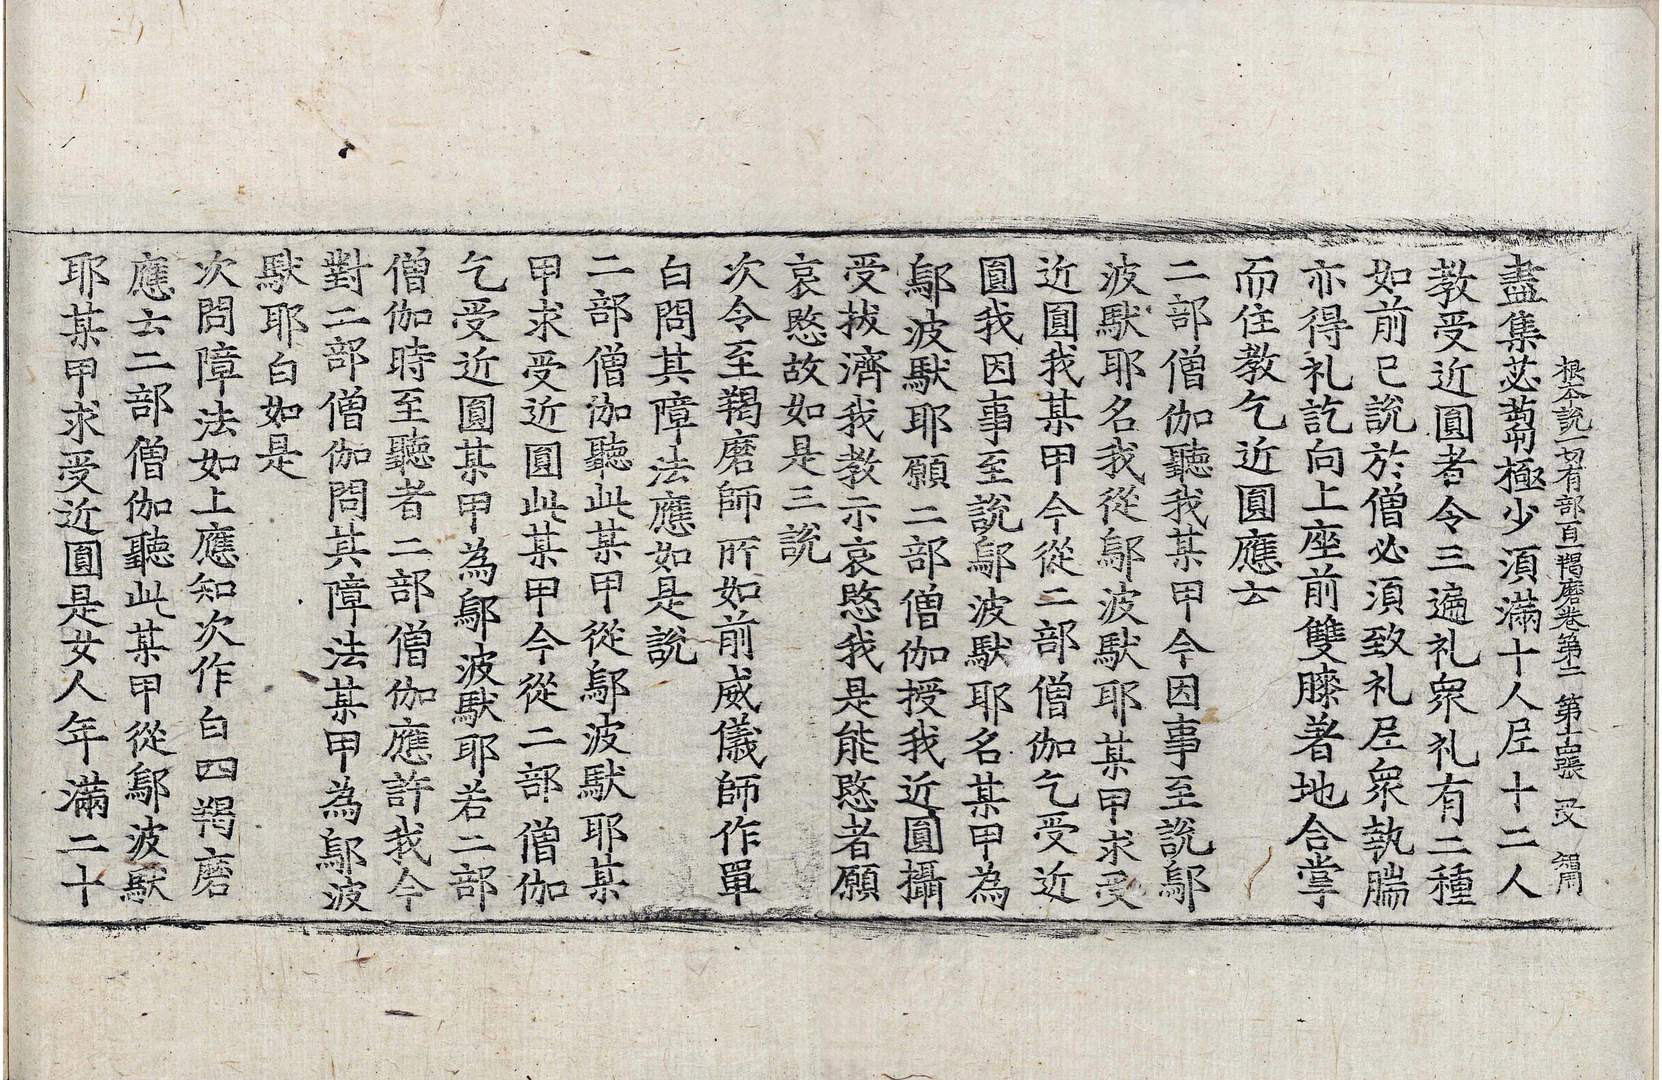 根本說一切有部百一羯磨卷第二 第十四張 受
盡集苾蒭極少須滿十人尼十二人
教受近圓者令三遍礼衆礼有二種
如前已說於僧必須致礼尼衆執腨
亦得礼訖向上座前雙膝著地合掌
而住教乞近圓應云
二部僧伽聽我某甲今因事至說鄔
波馱耶名我從鄔波馱耶某甲求受
近圓我某甲今從二部僧伽乞受近
圓我因事至說鄔波馱耶名某甲為
鄔波馱耶願二部僧伽授我近圓攝
受拔濟我教示哀愍我是能愍者願
哀愍故如是三說
次令至羯磨師所如前威儀師作單
白問其障法應如是說
二部僧伽聽此某甲從鄔波馱耶某
甲求受近圓此某甲今從二部僧伽
乞受近圓某甲為鄔波馱耶若二部
僧伽時至聽者二部僧伽應許我今
對二部僧伽問其障法某甲為鄔波
馱耶白如是
次問障法如上應知次作白四羯磨
應云二部僧伽聽此某甲從鄔波馱
耶某甲求受近圓是女人年滿二十